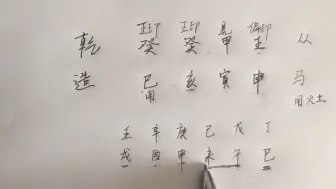 正印 正印 偏印
乾 癸 癸 甲 壬 从
造 巳 亥 寅 申 马
用 用火土
壬 辛 庚 己 戊 丁
戌 酉 申 未 午 巳